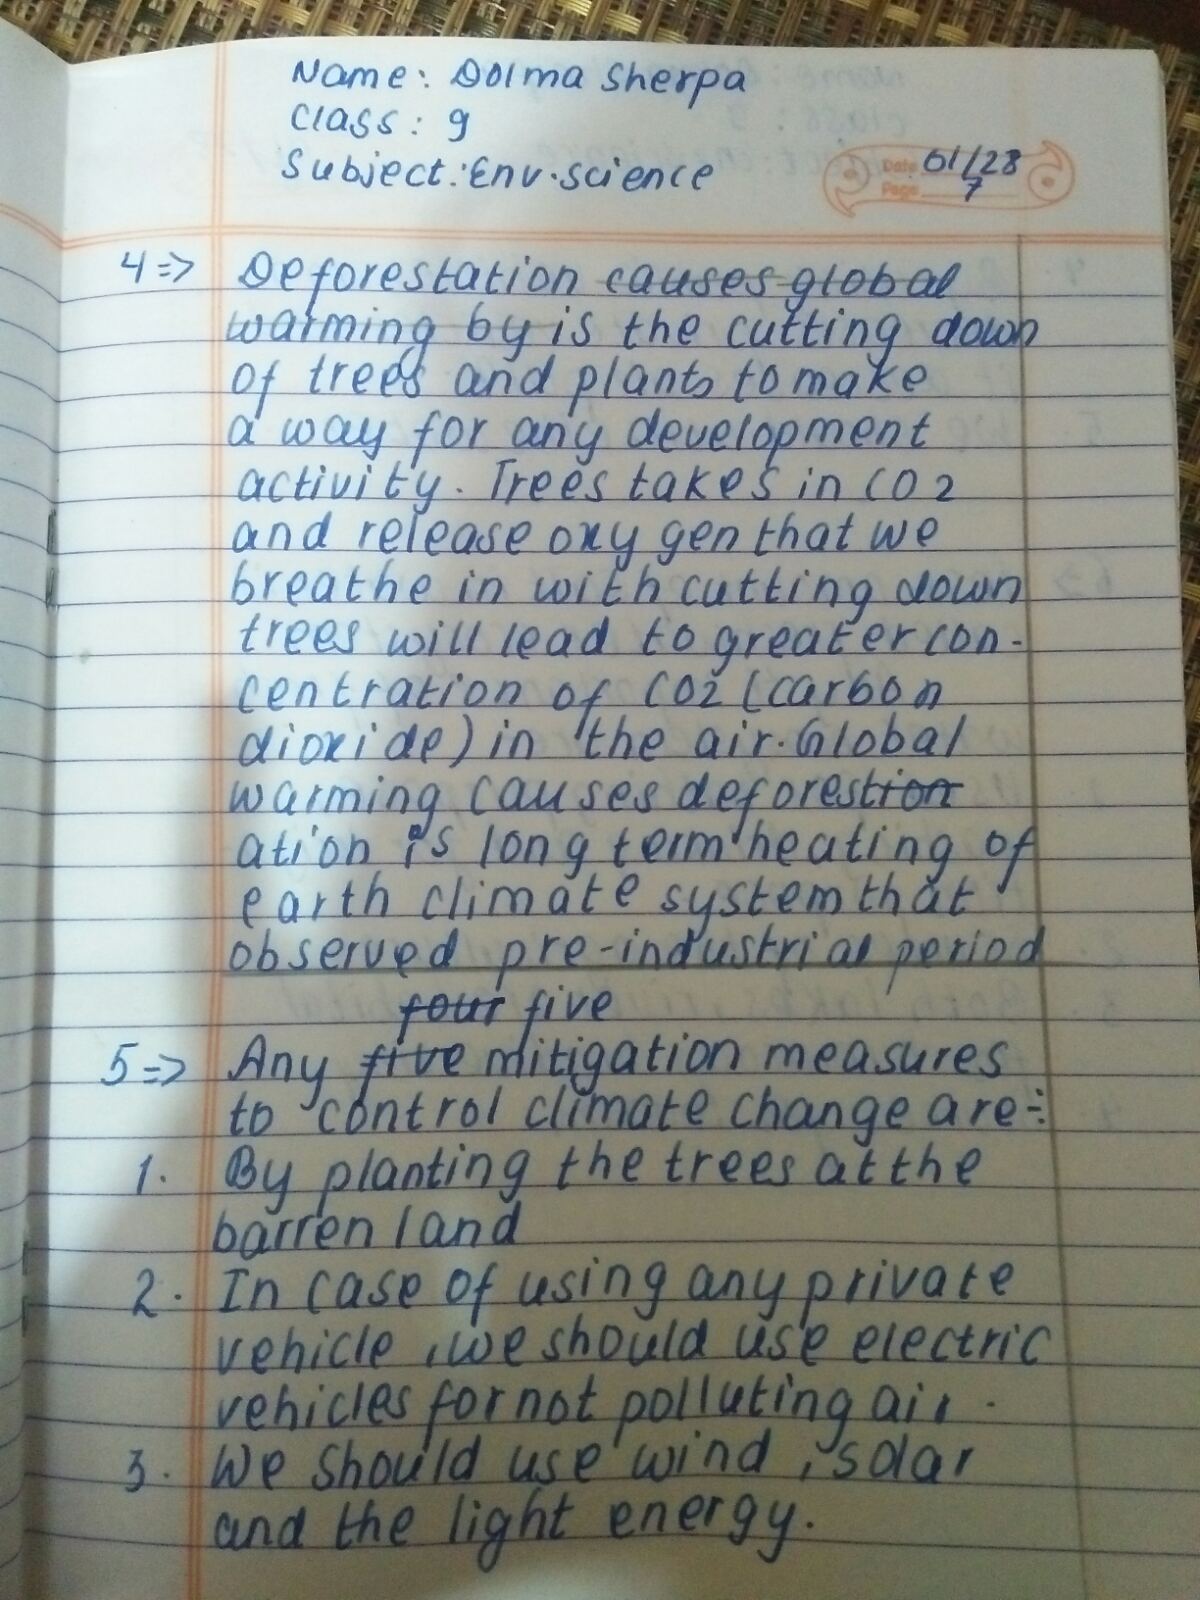 Name: Dolma Sherpa
Class: 9
Subject: Env. science
Date 01/28
Page 7
4=> Deforestation causes global
warming by is the cutting down
of trees and plants to make
a way for any development
activity. Trees takes in CO2
and release oxygen that we
breathe in with cutting down
trees will lead to greater con-
centration of CO2 (carbon
dioxide) in the air. Global
warming causes deforestion
ation is long term heating of
earth climate system that
observed pre-industrial period
four five
5=> Any five mitigation measures
to control climate change are÷
1. By planting the trees at the
barren land
2. In case of using any private
vehicle, we should use electric
vehicles for not polluting air.
3. We should use wind, solar
and the light energy.